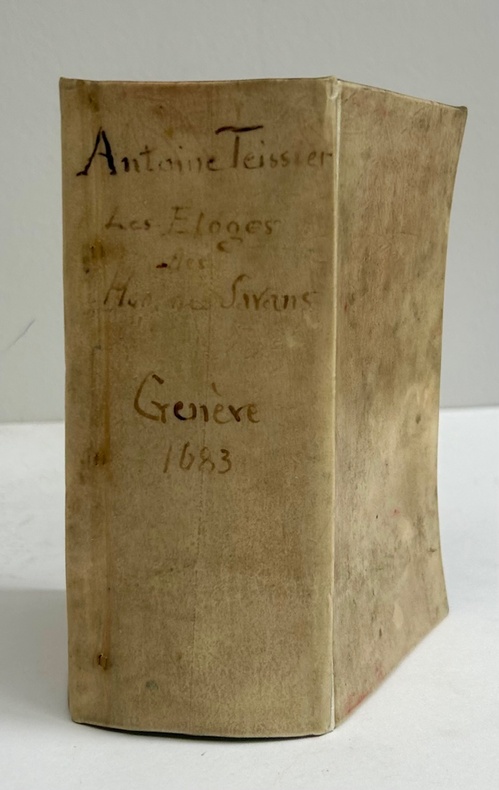 Antoine Teissier
Les Eloges
des
Hommes Savans
Genève
1683